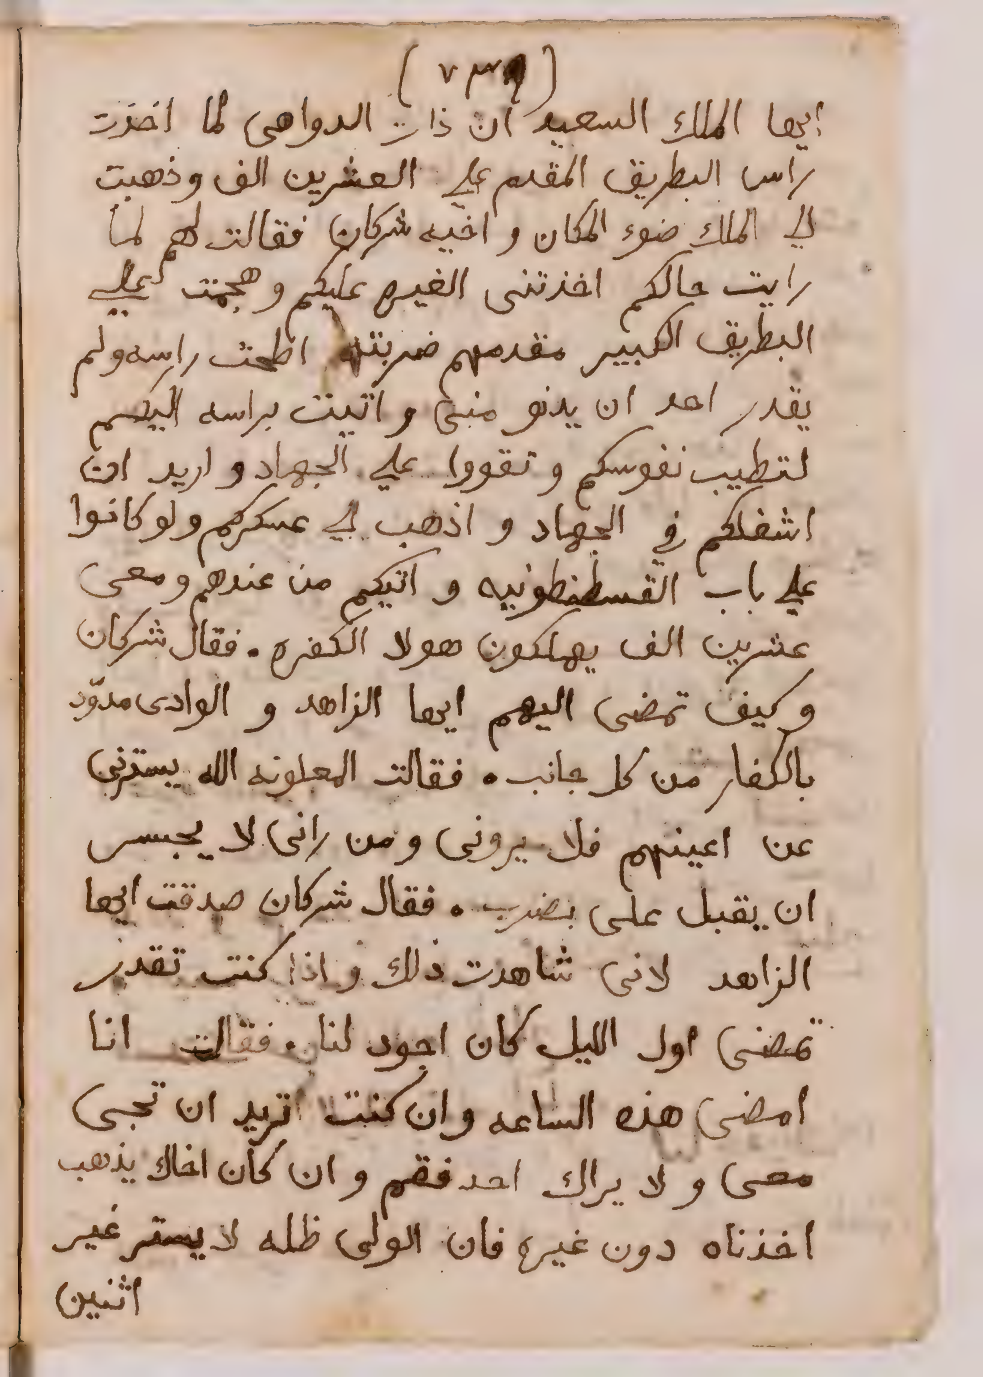 (٧٣٩)
ايها الملك السعيد ان ذات الدواهى لما اخذت
راس البطريق المقدم على العشرين الف وذهبت
الي الملك ضوء المكان و اخيه شركان فقالت لهم لما
رايت حالكم اخذتنى الغيره عليكم وهجمت على
البطريق الكبير مقدمهم ضربته اطحت راسه ولم
يقدر احد ان يدنو منى و اتيت براسه اليكم
لتطيب نفوسكم و تقووا علي الجهاد و اريد ان
اشغلكم في الجهاد و اذهب الي عسكركم ولو كانوا
علي باب القسطنطونيه و اتيكم من عندهم ومعى
عشرين الف يهلكون هولا الكفره . فقال شركان
وكيف تمضى اليهم ايها الزاهد و الوادى مدوّد
بالكفار من كل جانب . فقالت المعلونه الله يسترنى
عن اعينهم فلا يرونى ومن رانى لا يجسر
ان يقبل على بضرب . فقال شركان صدقت ايها
الزاهد لانى شاهدت ذلك و اذا كنت تقدر
تمضى اول الليل كان اجود لنا . فقالت انا
امضى هذه الساعه وان كنت تريد ان تجى
معى و لا يراك احد فقم و ان كان اخاك يذهب
اخذناه دون غيره فان الولى ظله لا يستر غير
اثنين